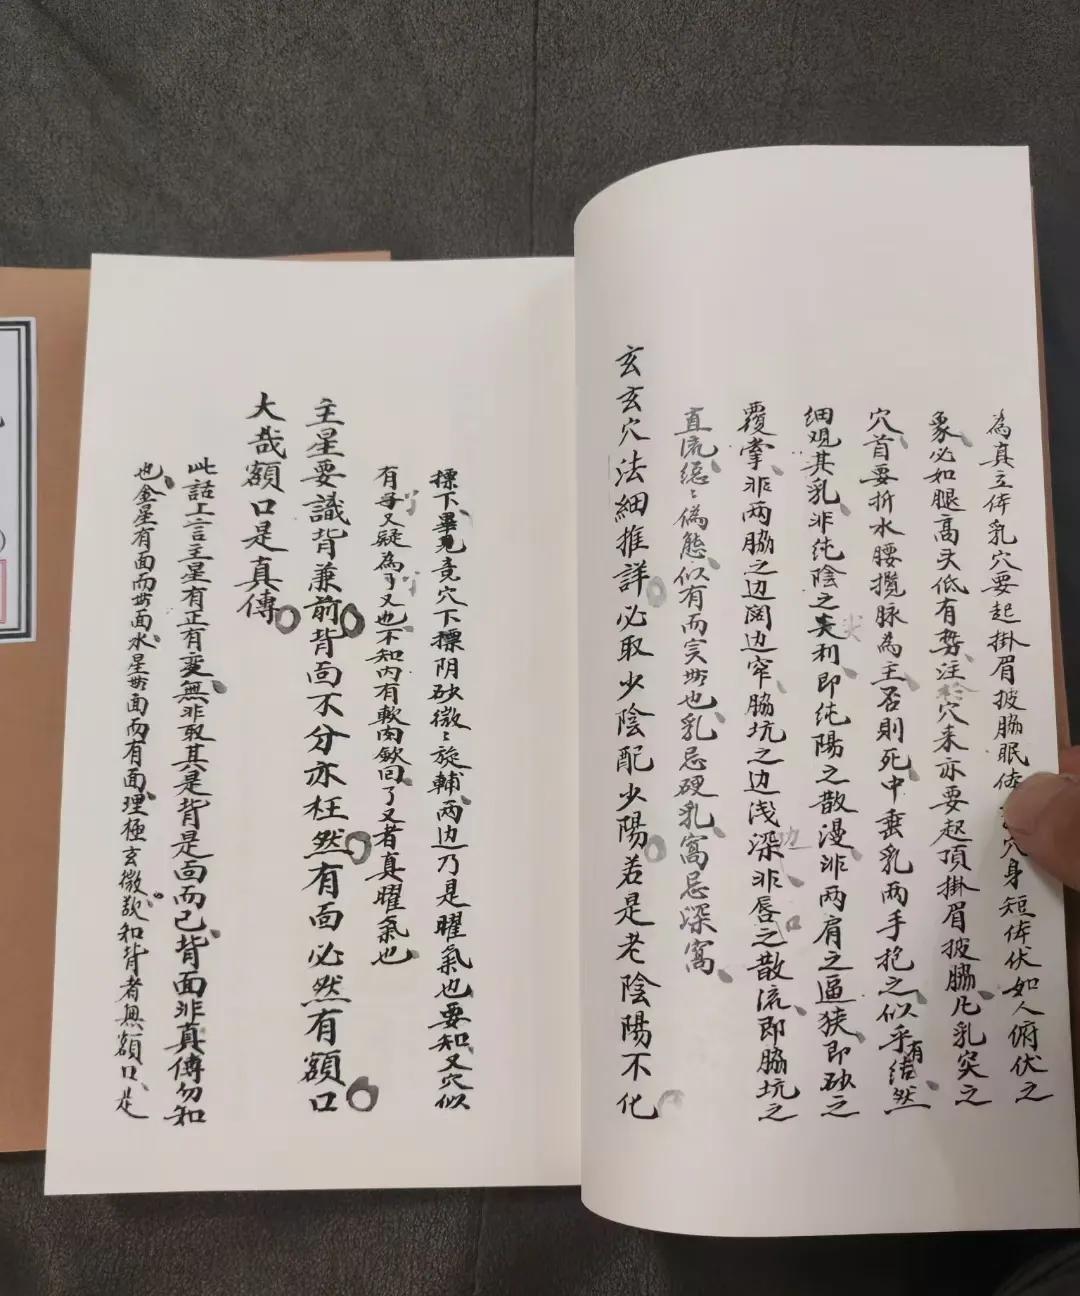 為真立体乳穴要起掛眉披脇眠体穴身短体伏如人俯伏之
象必如腿高头低有势注於穴来亦要起頂掛眉披脇凢乳突之
穴首要折水腰攬脉為主否則死中垂乳两手抱之似乎有结然
细观其乳非纯陰之尖利即纯陽之散漫非两肩之逼狭即砂之
覆掌非两脇之边阔边窄脇坑之边浅深非唇之散流即脇坑之
直流緦〻偽態似有而实世也乳忌硬乳窩忌深窩
玄玄穴法細推詳必取少陰配少陽若是老陰陽不化
標下畢竟竟穴下摽阴砂微〻旋輔两边乃是曜氣也要知又穴似
有母又疑為了又也不知内有軟肉歛回了又者真曜氣也
主星要識背兼前背面不分亦枉然有面必然有額口
大哉額口是真傳
此話上言主星有正有变無非取其是背是面而已背面非真傳勿知
也金星有面而世面水星世面而有面理極玄微歀知背者無額口是